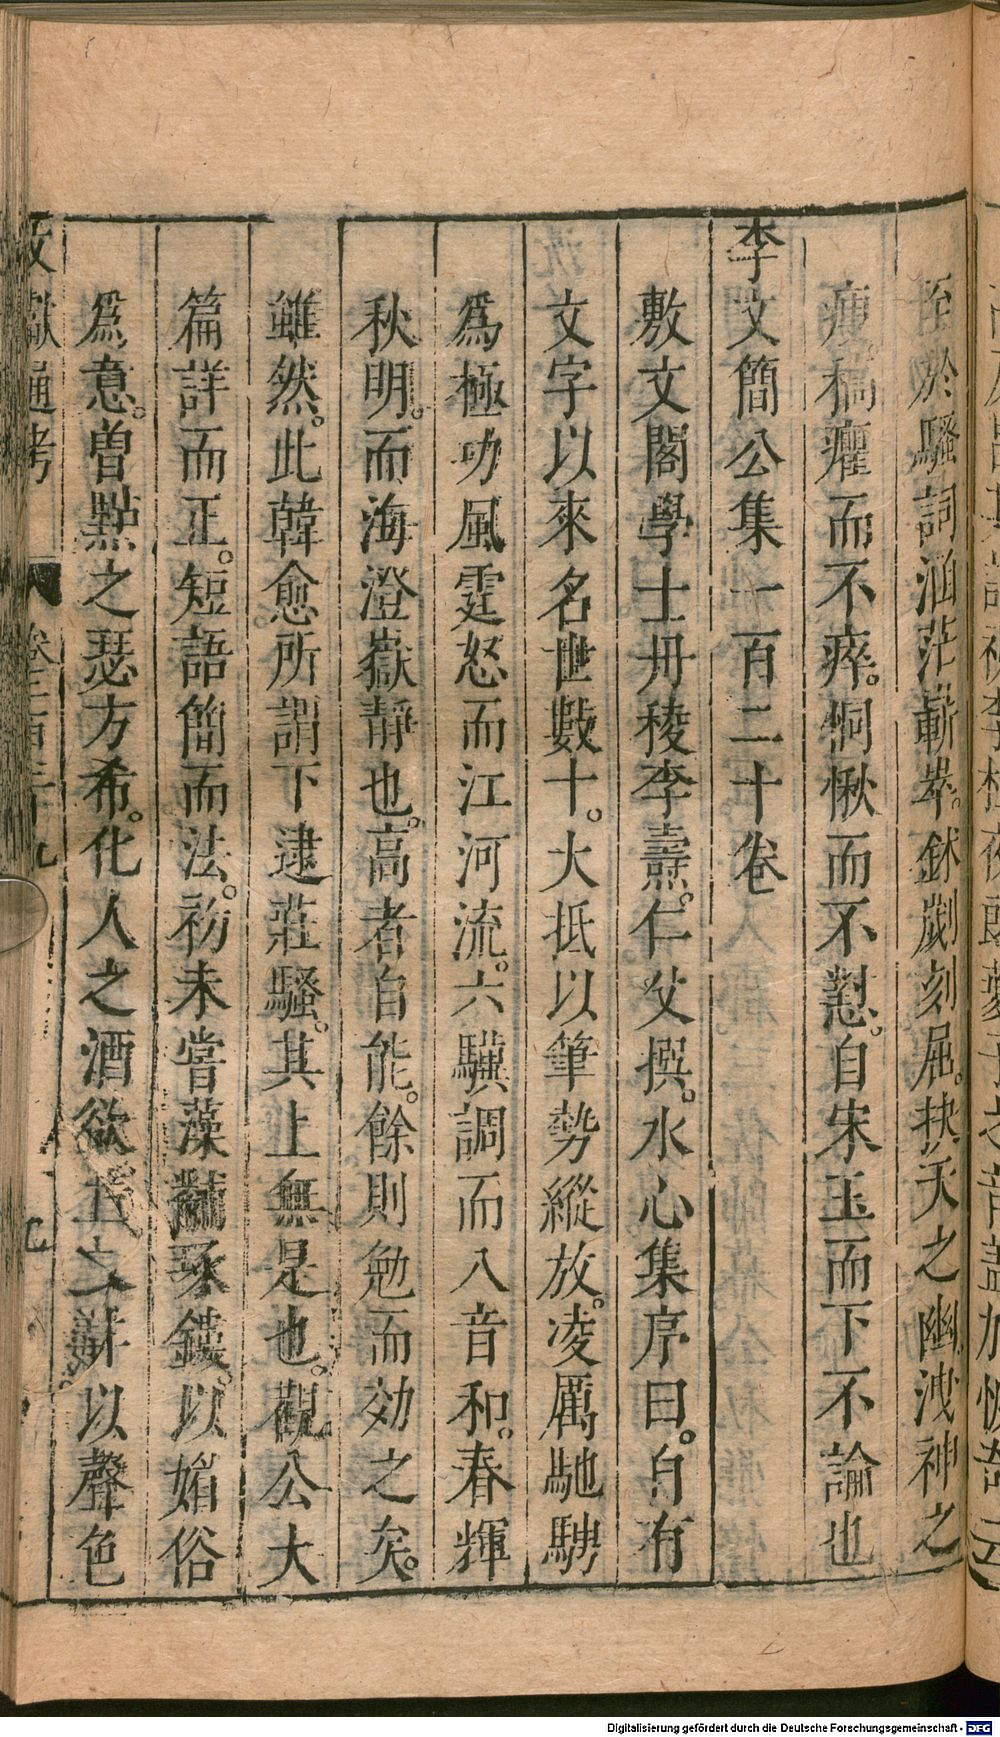 至於騷詞涵茫嶄崒。鉥劌刻屈。抉天之幽洩神之
瘦。槁癯而不瘁。恫愀而不懟。自宋玉而下不論也
李文簡公集一百二十卷
敷文閣學士丹稜李燾。仁父撰。水心集序曰。自有
文字以來名世數十。大抵以筆勢縱放。凌厲馳騁
爲極功風霆怒而江河流。六驥調而八音和。春輝
秋明。而海澄嶽靜也。高者自能。餘則勉而効之矣。
雖然。此韓愈所謂下逮莊騷。其上無是也。觀公大
篇詳而正。短語簡而法。初未嘗藻黼琢鏤。以媚俗
爲意。曾點之瑟方希。化人之酒欲清。以聲色
文獻通考 卷二百三十九 九
Digitalisierung gefördert durch die Deutsche Forschungsgemeinschaft - DFG